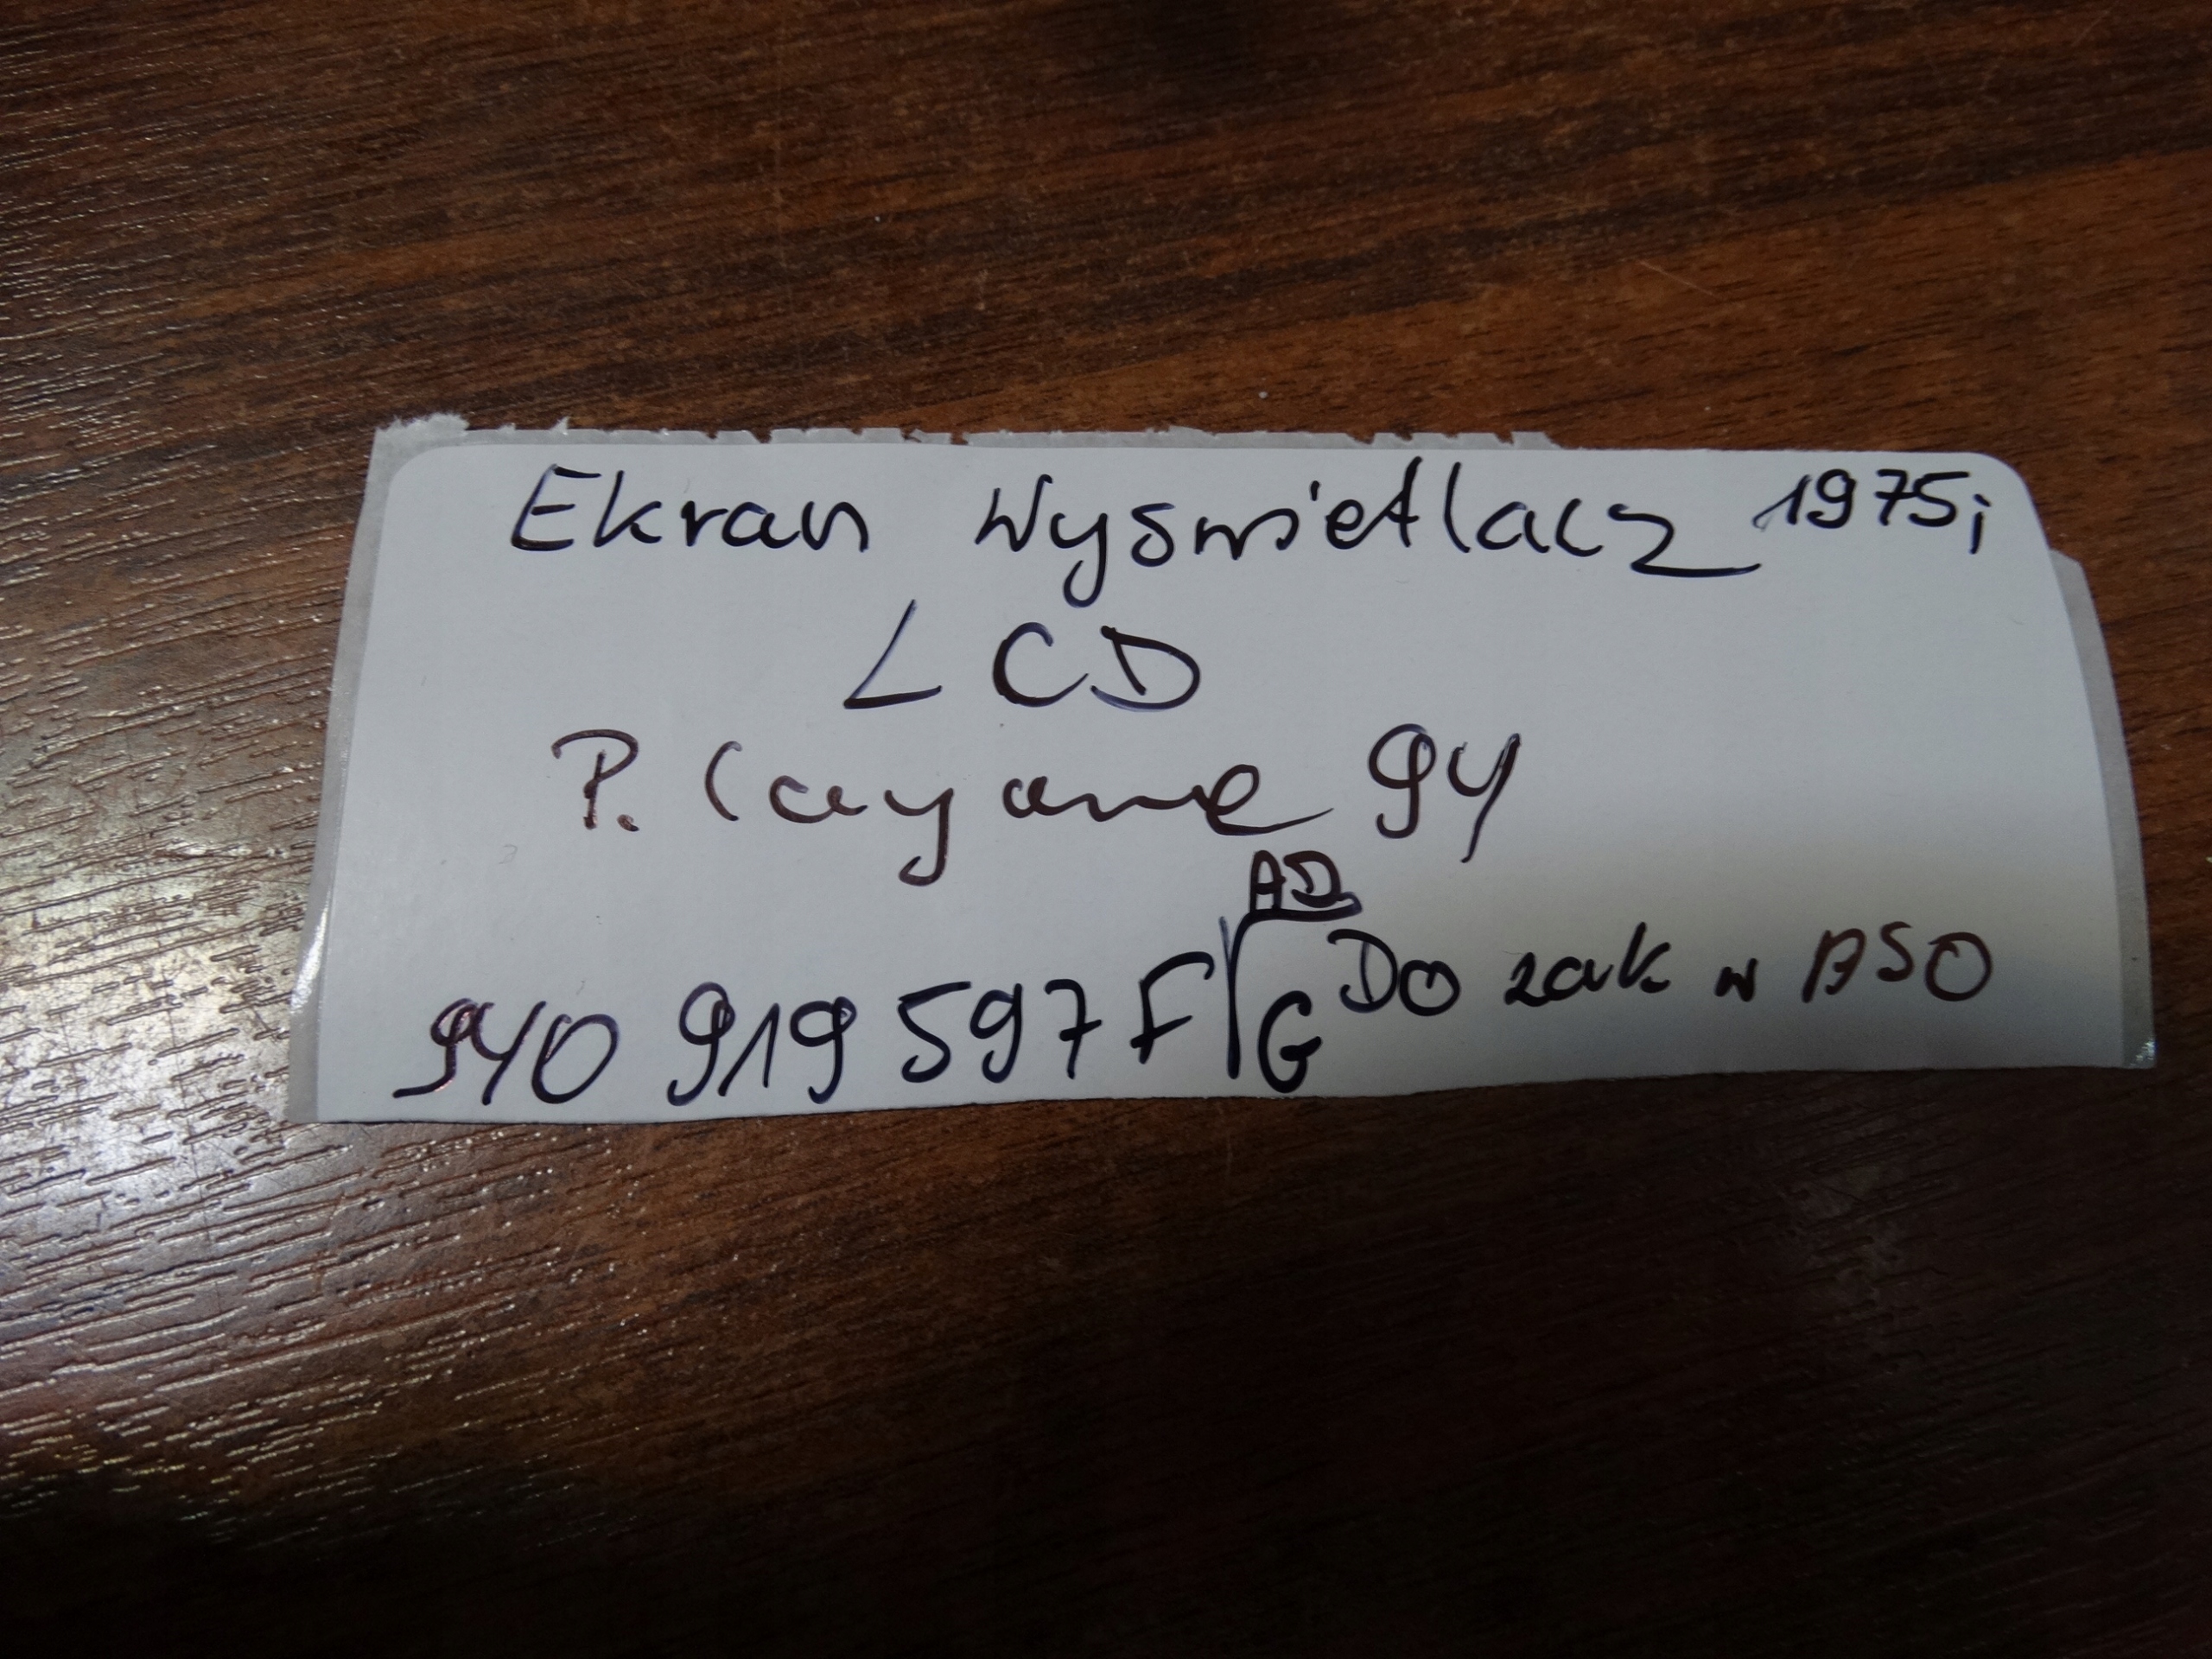 Ekran Wyświetlacz 1975;
LCD
P. Cayane 9Y
AD
9Y0 919 597 F/G Do zak w ASO